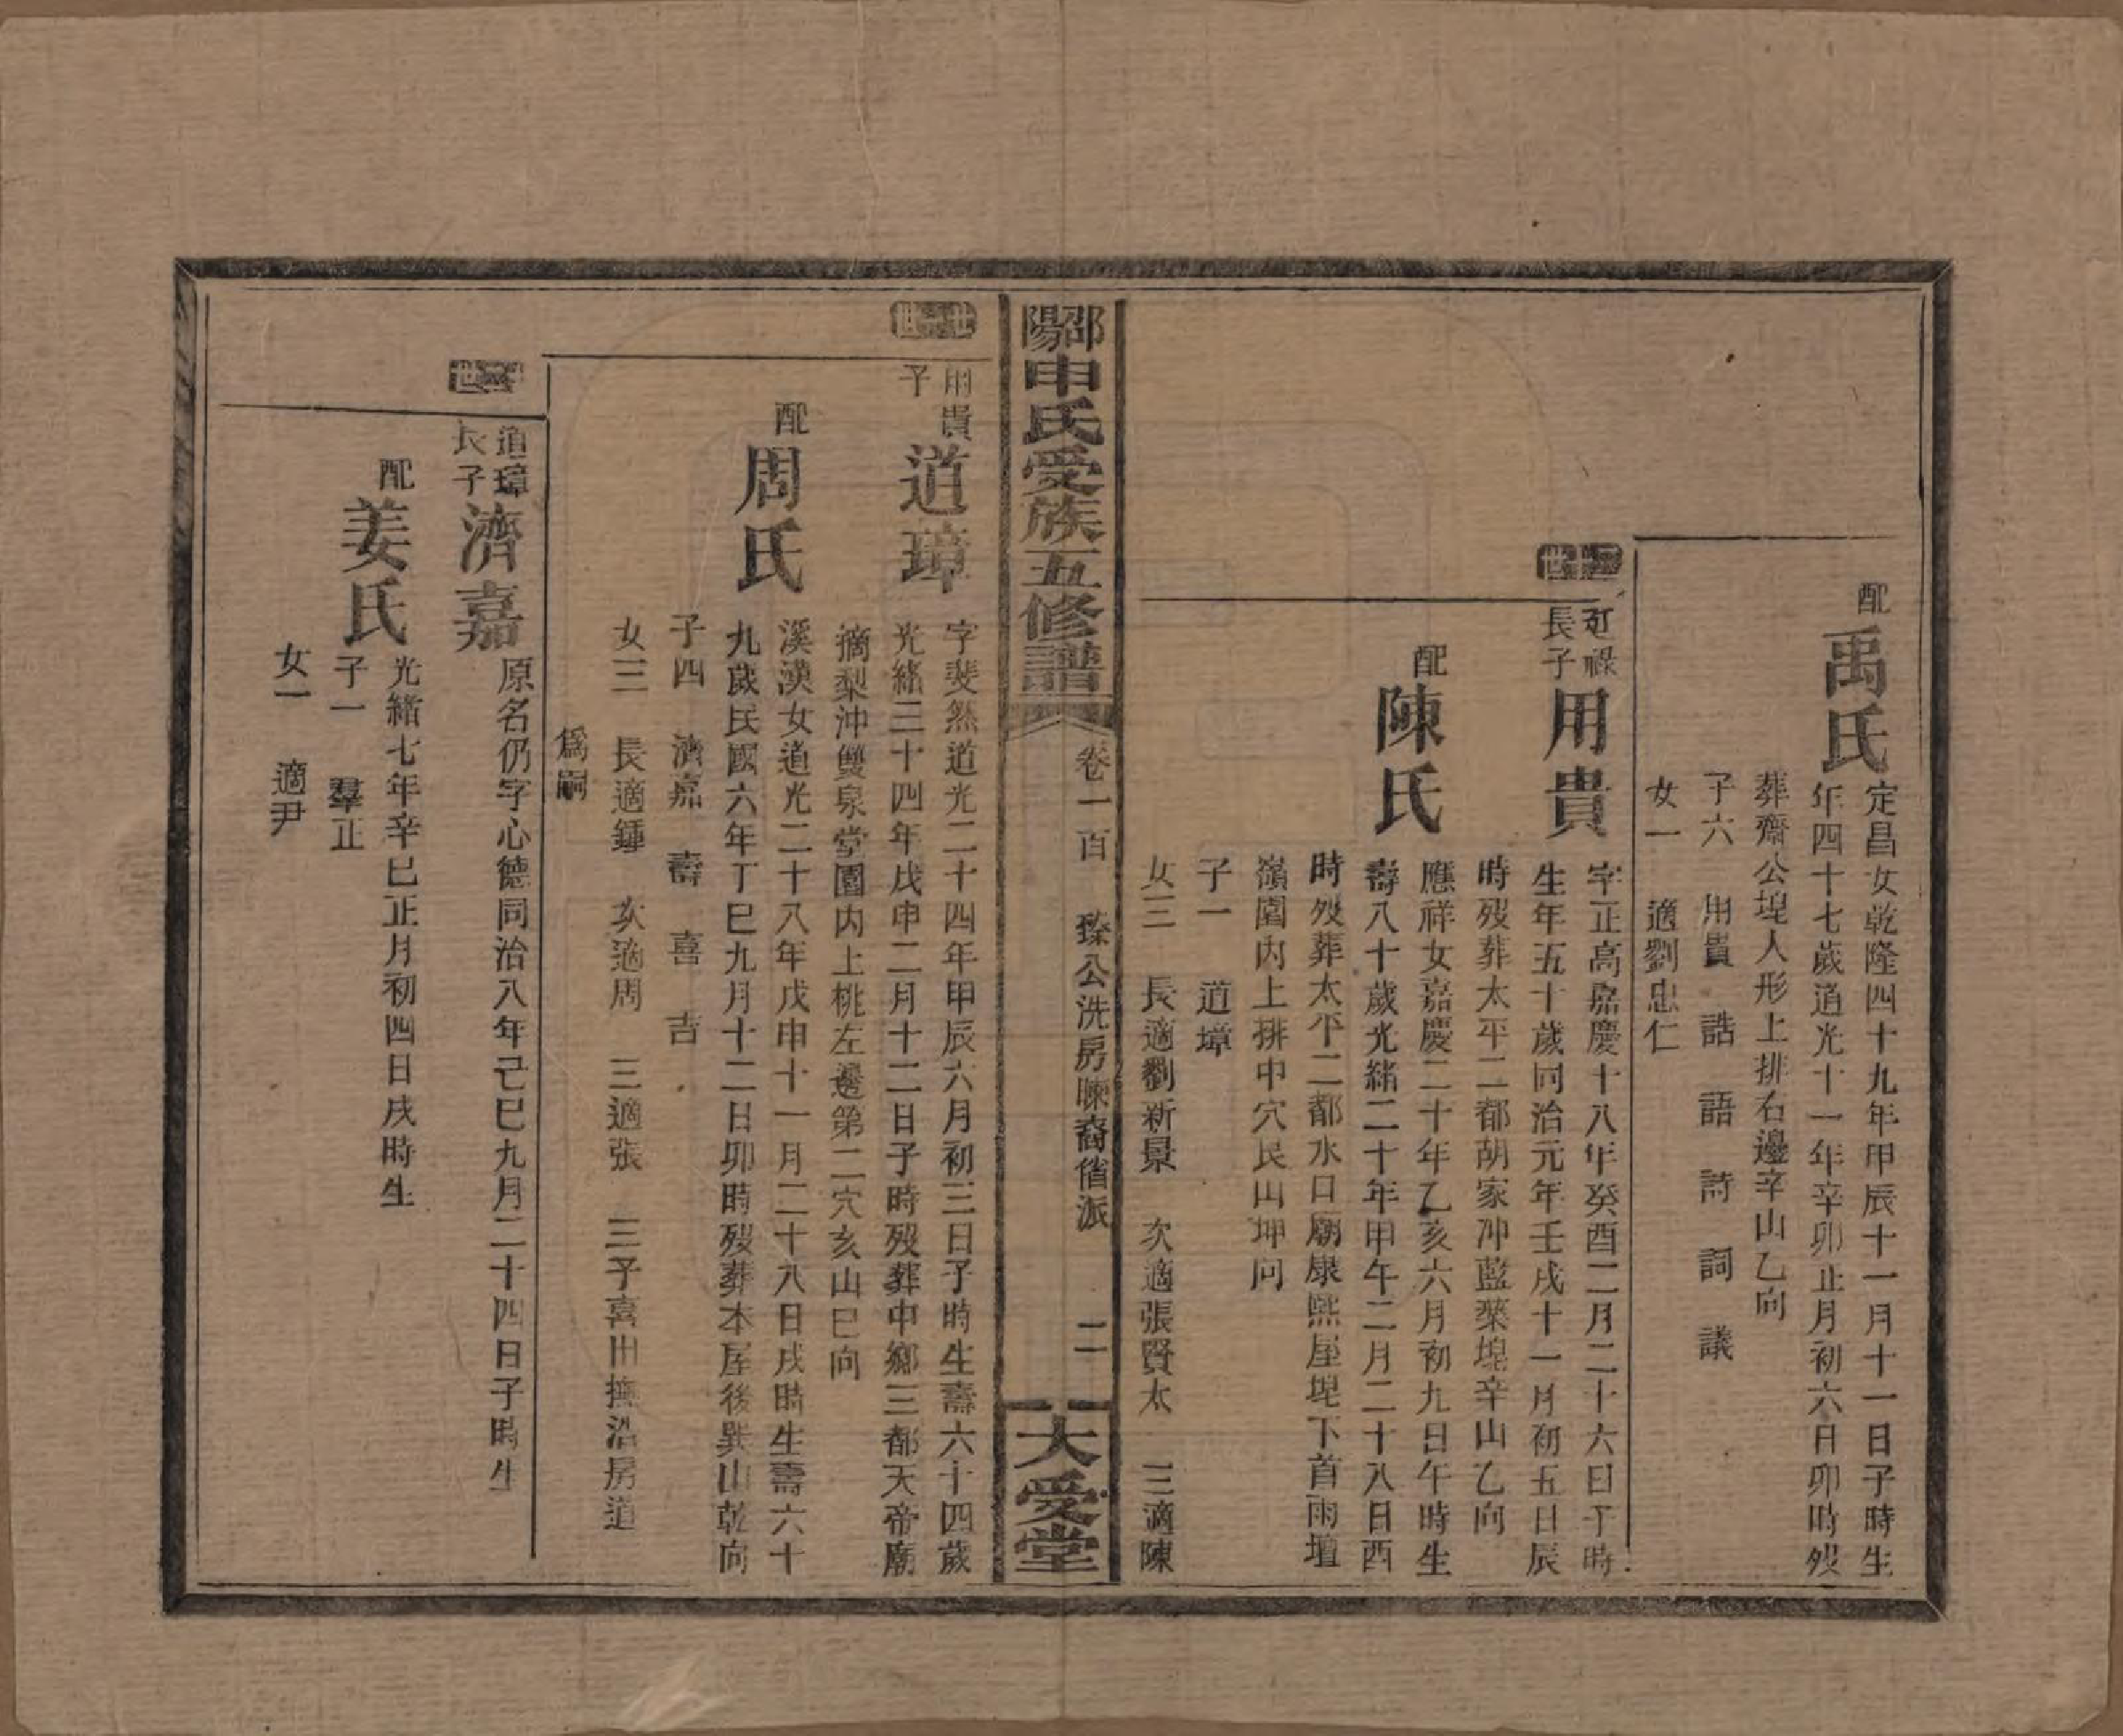 配
禹氏
定昌女乾隆四十九年甲辰十一月十一日子時生
年四十七歲道光十一年辛卯正月初六日卯時歿
葬齋公堭人形上排右邊辛山乙向
子六 用貴 誥 語 詩 詞 議
女一 適劉忠仁
廷祿
長子
用貴
字正高嘉慶十八年癸酉二月二十六日子時
生年五十歲同治元年壬戌十一月初五日辰
時歿葬太平二都胡家沖藍藥堭辛山乙向
配
陳氏
應祥女嘉慶二十年乙亥六月初九日午時生
壽八十歲光緒二十年甲午二月二十八日酉
時歿葬太平二都水口廟康熙屋堭下首雨壇
嶺園內上排中穴艮山坤向
子一 道璋
女三 長適劉新景 次適張賢太 三適陳
邵陽申氏受族五修譜
卷一百 臻公洗房暕裔偗派 二
大受堂
用貴
子
道璋
字斐然道光二十四年甲辰六月初三日子時生壽六十四歲
光緒三十四年戊申二月十二日子時歿葬中鄉三都天帝廟
摘梨沖雙泉堂園內上桃左邊第二穴亥山巳向
配
周氏
溪漢女道光二十八年戊申十一月二十八日戌時生壽六十
九歲民國六年丁巳九月十二日卯時歿葬本屋後巽山乾向
子四 濟嘉 壽 喜 吉
女三 長適鍾 次適周 三適張 三子喜出撫浩房道
爲嗣
道璋
長子
濟嘉
原名仍字心德同治八年己巳九月二十四日子時生
配
姜氏
光緒七年辛巳正月初四日戌時生
子一 羣正
女一 適尹